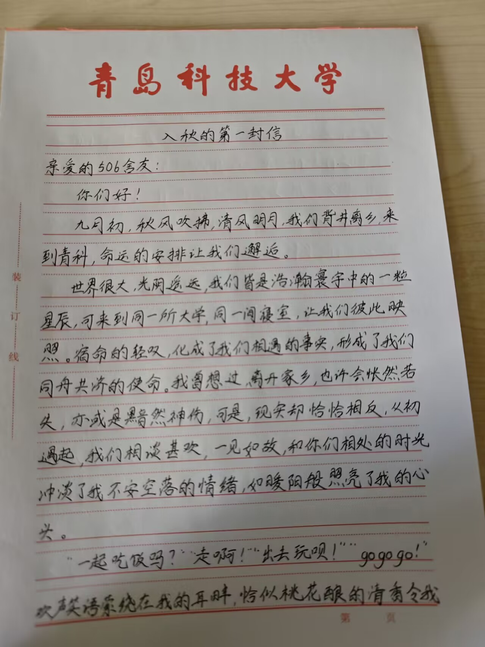 青岛科技大学
入秋的第一封信
亲爱的506舍友：
你们好！
九月初，秋风吹拂，清风明月，我们背井离乡来
到青科，命运的安排让我们邂逅。
世界很大，光阴迢远，我们皆是浩瀚寰宇中的一粒
星辰，可来到同一所大学，同一间寝室，让我们彼此映
照。宿命的轻叹，化成了我们相遇的事实，形成了我们
同舟共济的使命。我曾想过，离开家乡，也许会怅然若
失，亦或是黯然神伤，可是，现实却恰恰相反，从初
遇起，我们相谈甚欢，一见如故，和你们相处的时光
冲淡了我不安空落的情绪，如暖阳般照亮了我的心
头。
“一起吃饭吗？”“走啊！”“出去玩呗！”“gogogo！”
欢声笑语萦绕在我的耳畔，恰似桃花酿的清香令我
装订线
第 页